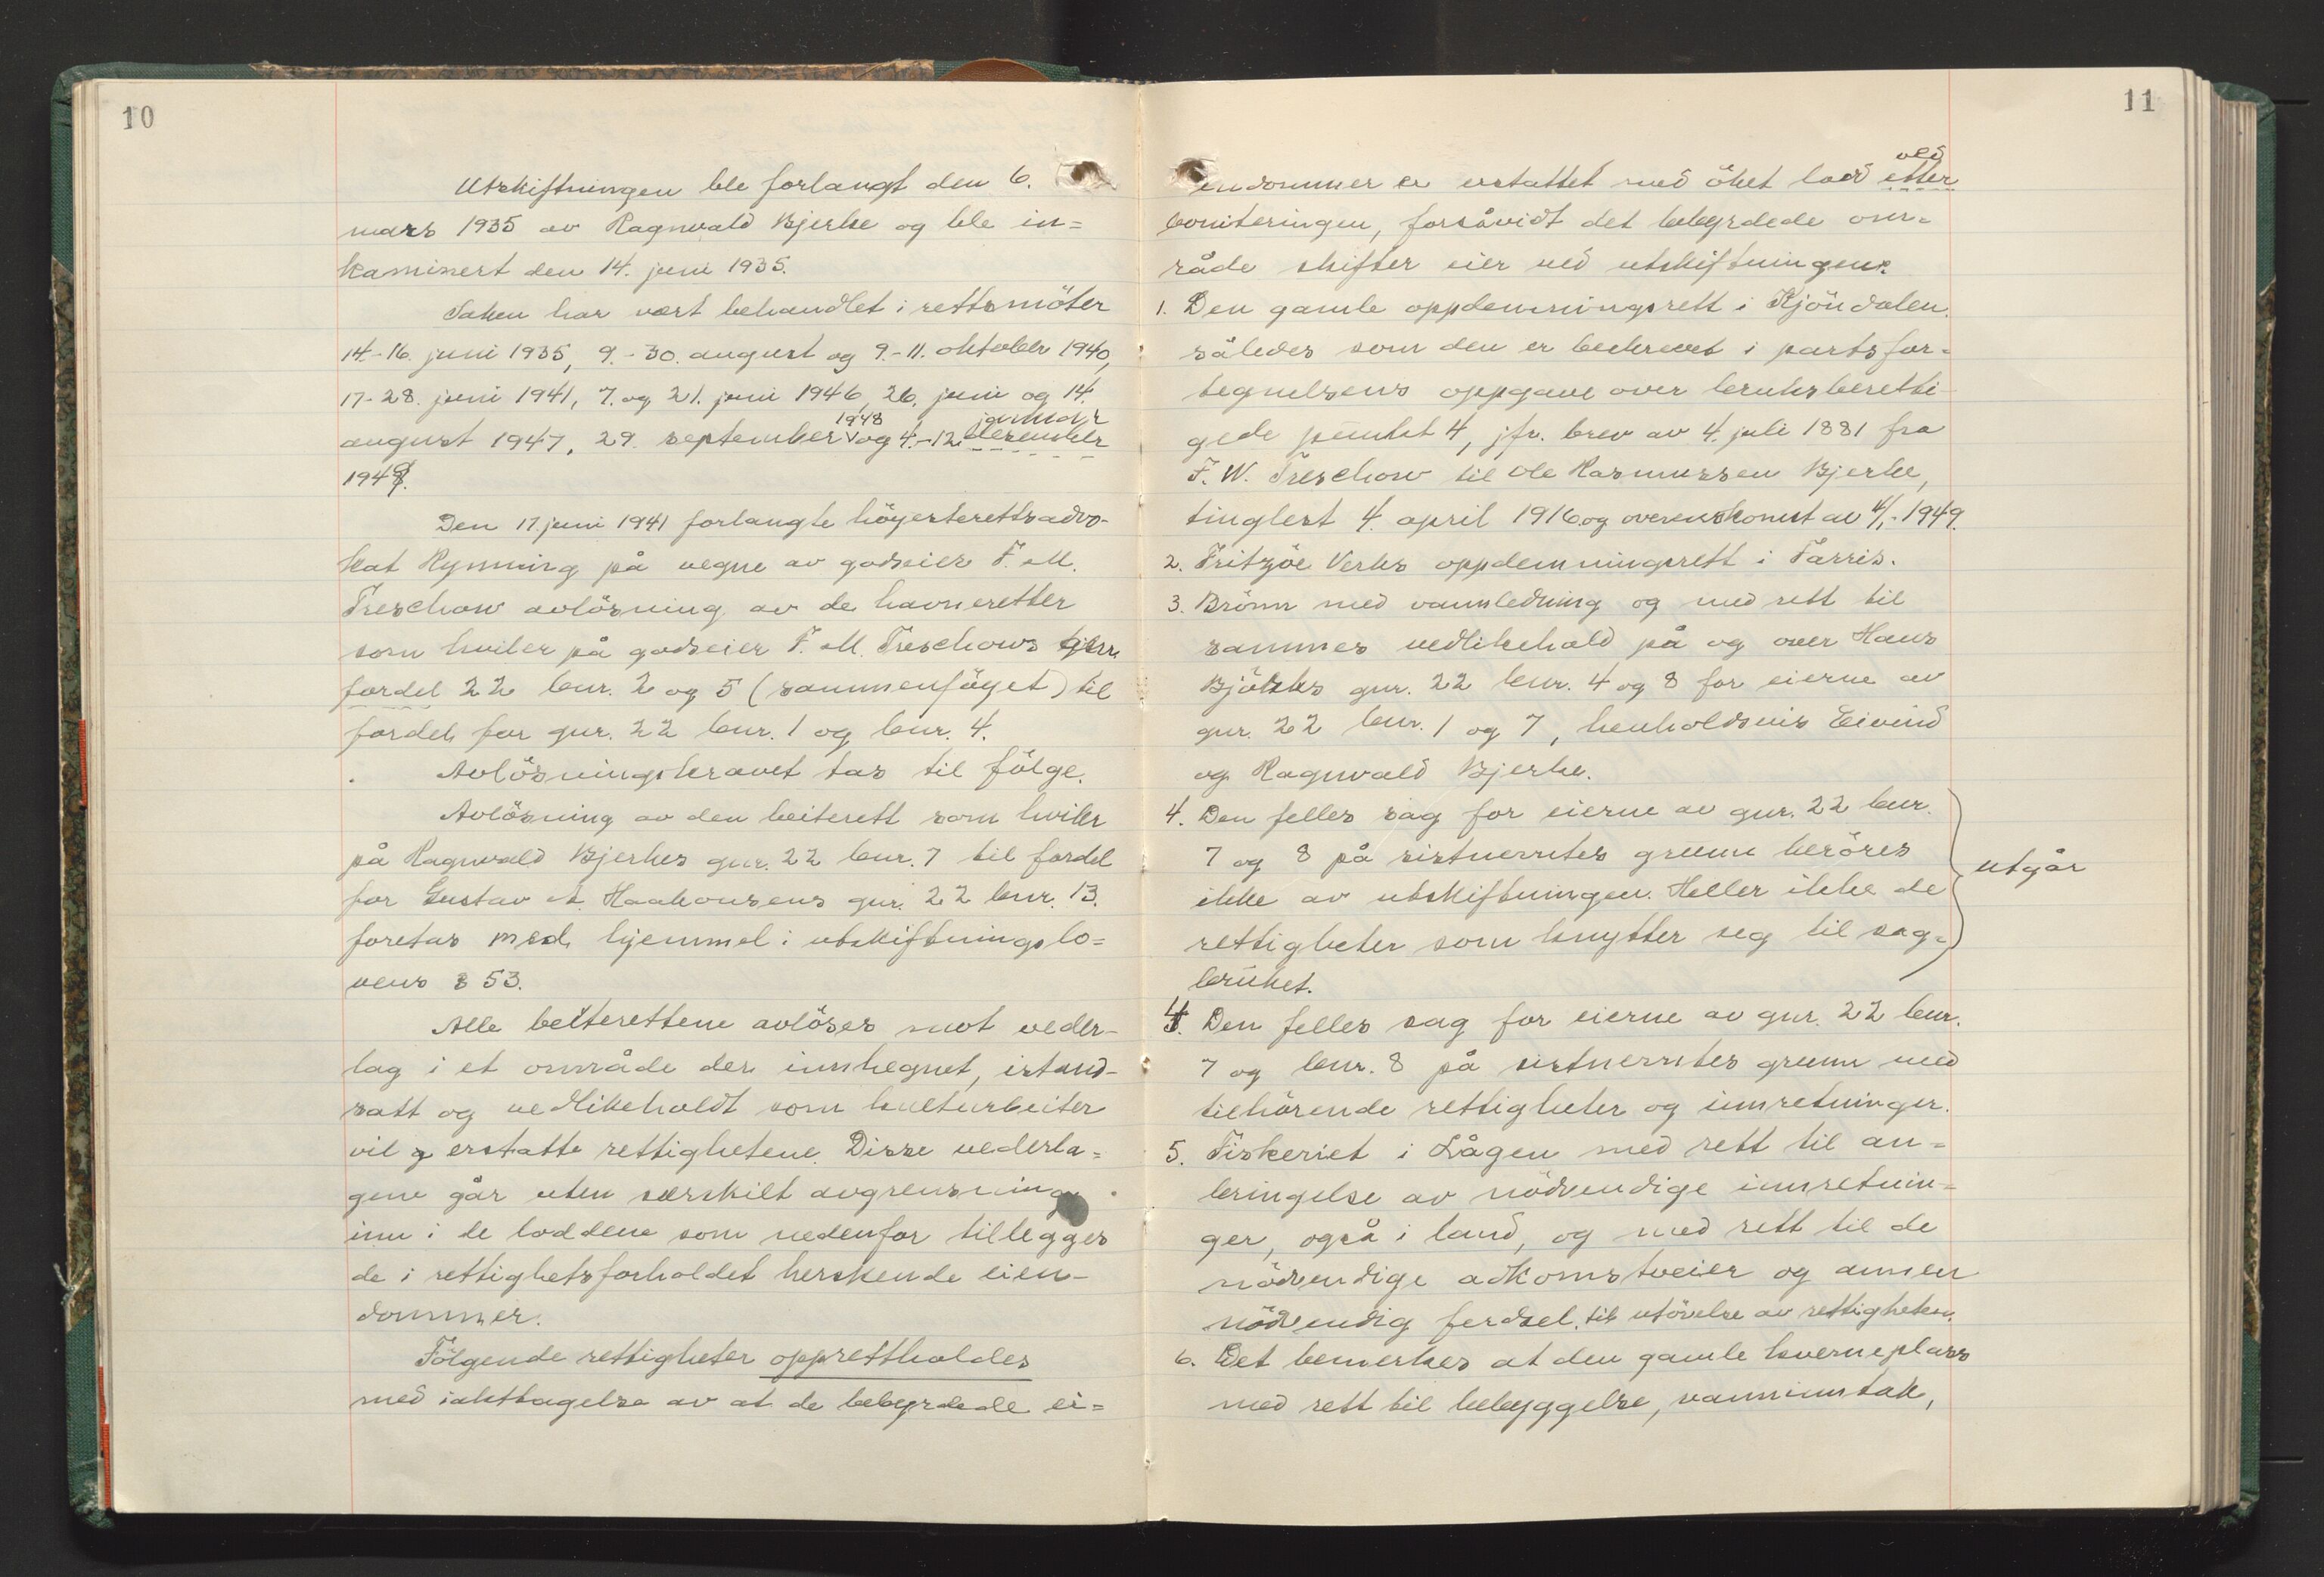 10
Utskiftningen ble forlangt den 6.
mars 1935 av Ragnvald Bjerke og ble in=
kaminert den 14. juni 1935.
Saken har vært behandlet i rettsmöter
14.-16. juni 1935, 9.-30. august og 9.-11. oktober 1940,
17-28. juni 1941, 7. og 21. juni 1946, 26. juni og 14.
1948 januar
august 1947, 29. september og 4.-12. desember
1949.
Den 17. juni 1941 forlangte höyesterettsadvo-
kat Rynning på vegne av godseier F. M.
Treschow avlösning av de havneretter
som hviler på godseier F. M. Treschows
fordel 22 bnr. 2 og 5 (sammenföyet) til
fordel for gnr. 22 bnr. 1 og bnr. 4.
Avlösningskravet tas til fölge.
Avlösning av den beiterett som hviler
på Ragnvald Bjerkes gnr. 22 bnr. 7 til fordel
for Gustav A. Haakonsens gnr. 22 bnr. 13.
foretas med hjemmel i utskiftningslo=
vens § 53.
Alle beiterettene avlöses mot veder-
lag i et område der innhegnet, istand-
satt og vedlikeholdt som kulturbeiter
vil erstatte rettighetene. Disse vederla=
gene går uten særskilt avgrensning
inn i de loddene som nedenfor tillegges
de i rettighetsforholdet herskende eien-
dommer.
Fölgende rettigheter opprettholdes
med iakttagelse av at de bebyrdede ei=
11
ved
endommer er erstattet med öket lodd etter
boniteringen, forsåvidt det bebyrdede om=
råde skifter eier ved utskiftningen:
1. Den gamle oppdemningsrett i Kjöndalen.
således som den er beskrevet i partsfor=
tegnelsens oppgave over bruksberetti-
gede punkt 4, jfr. brev av 4. juli 1881 fra
F. W. Treschow til Ole Rasmussen Bjerke,
tinglest 4. april 1916 og overenskomst av 4/1-1949.
2. Fritzöe Verks oppdemningsrett i Farris.
3. Brönn med vannledning og med rett til
sammes vedlikehold på og over Hans
Bjökks gnr. 22 bnr. 4 og 8 for eierne av
gnr. 22 bnr. 1 og 7, henholdsvis Eivind
og Ragnvald Bjerke.
4. Den felles sag for eierne av gnr. 22 bnr.
7 og 8 på sistnevntes grunn beröres
ikke av utskiftningen. Heller ikke de
rettigheter som knytter seg til sag=
bruket.
utgår
4. Den felles sag for eierne av gnr. 22 bnr.
7 og bnr. 8 på sistnevntes grunn med
tilhörende rettigheter og innretninger.
5. Fiskeriet i Lågen med rett til an=
bringelse av nödvendige innretnin=
ger, også i land, og med rett til de
nödvendige adkomstveier og annen
nödvendig ferdsel til utövelse av rettigheten.
6. Det bemerkes at den gamle kverneplass
med rett til bebyggelse, vanninntak,